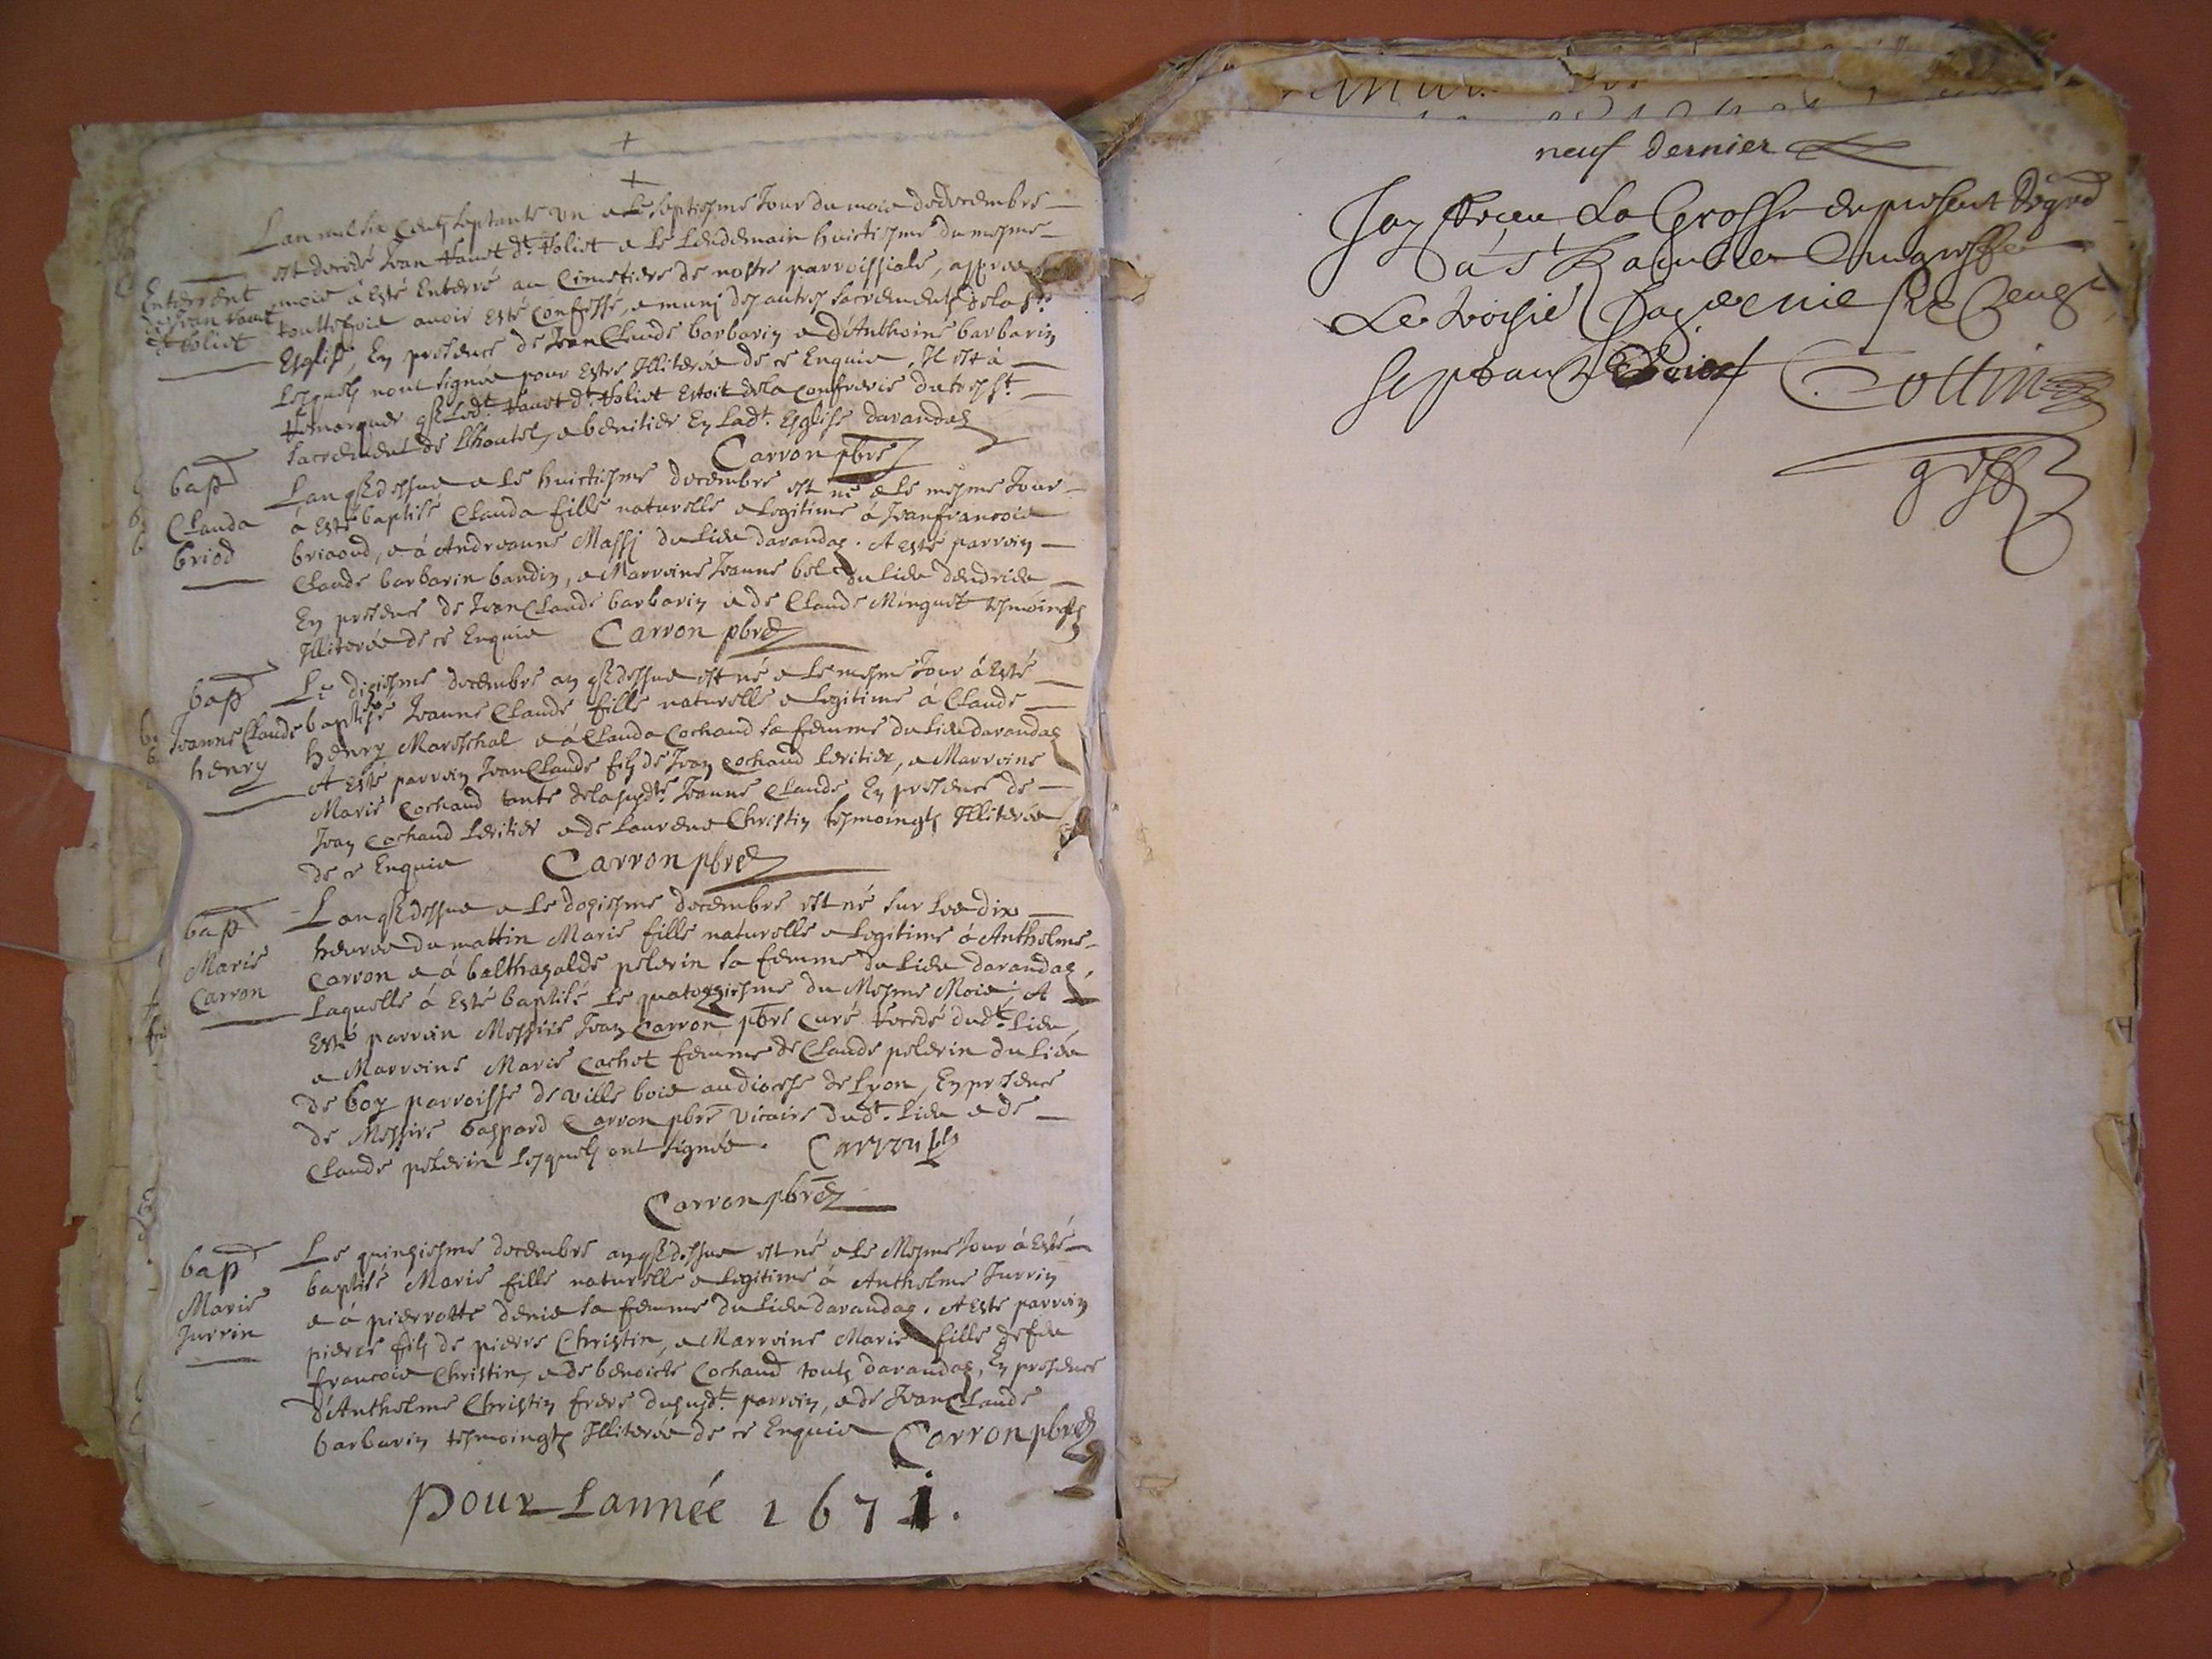 Lan mil six Centz septante un & Le septiesme Jour du mois de decembre
est decedé Jean d.t Holiet & Le Lendemain huictiesme du mesme
mois à Esté Enterré au Cimetiere de nostre parroissiale, appres
touttefois avoir Esté Confessé, & muni des autres sacrementz de la s.te
Esglise, En presence de Jean Claude barbarin & d'Anthoine barbarin
Lesquelz nont signés pour Estre Illiterés de ce Enquis, Il est à
Remarquer q Led.t d.t Holiet Estoit de la Confrerie du tres st.
Sacrement de Lhoutel, & benitier En Lad.t Esglise darandaz
Carron pbre
Enterrement
de Jean
d.t Holiet
bap
Clauda
briod
Lan q dessus & Le huictiesme decembre est né & Le mesme Jour
à Esté baptisé Clauda fille naturelle & Legitime à Jean francois
briaoud, & à Andreanne Massj du Lieu darandaz. A Esté parrein
Claude barbarin bandin, & Marreine Jeanne bel du Lieu dendrieu
En presence de Jean Claude barbarin & de Claude Minguet tesmoingtz
Illiterés de ce Enquis Carron pbre
bap
Jeanne Claude
henry
Le dixiesme decembre an q dessus est né & Le mesme Jour à Esté
baptisé Jeanne Claude fille naturelle & Legitime à Claude
henry Mareschal & à Clauda Cochaud sa femme du Lieu darandaz
A Esté parrein Jean Claude filz de Jean Cochaud Leritier, & Marreine
Marie Cochaud tante de la susd.te Jeanne Claude En presence de
Jean Cochaud Leritier & de Laurens Christin tesmoingtz Illiterés
de ce Enquis Carron pbre
bap
Marie
Carron
Lan q dessus & Le dozisme decembre est né sur Les dix
heures du mattin Marie fille naturelle & Legitime à Anthelme
Carron & à balthazalde pelerin sa femme du Lieu darandaz,
Laquelle à Esté baptisé Le quatorziesme du Mesme Mois; A
Esté parrein Messire Jean Carron pbre Curé dud.t Lieu
& Marreine Marie Cachet femme de Claude pelerin du Lieu
de boy parroisse de ville bois au diocese de Lyon, En presence
de Messire baspard Carron pbre vicaire dud.t Lieu & de
Claude pelerin Lesquelz ont signés. Carron
Carron pbre
bap
Marie
Jurrin
Le quinziesme decembre an q dessus est né & Le Mesme Jour à Esté
baptisé Marie fille naturelle & Legitime à Anthelme Jurrin
& à pierrotte denis sa femme du Lieu darandaz. A Esté parrein
pierre filz de pierre Christin, & Marreine Marie fille de feu
francois Christin, & de benoicte Cochaud toutz darandaz, En presence
d'Anthelme Christin frere dususd.t parrein, & de Jean Claude
barbarin tesmoingtz Illiterés de ce Enquis Carron pbre
pour Lannée 1671.
neuf dernier
Jay Receu La Grosse du present Regrē
à St
Le
Cottin
greff